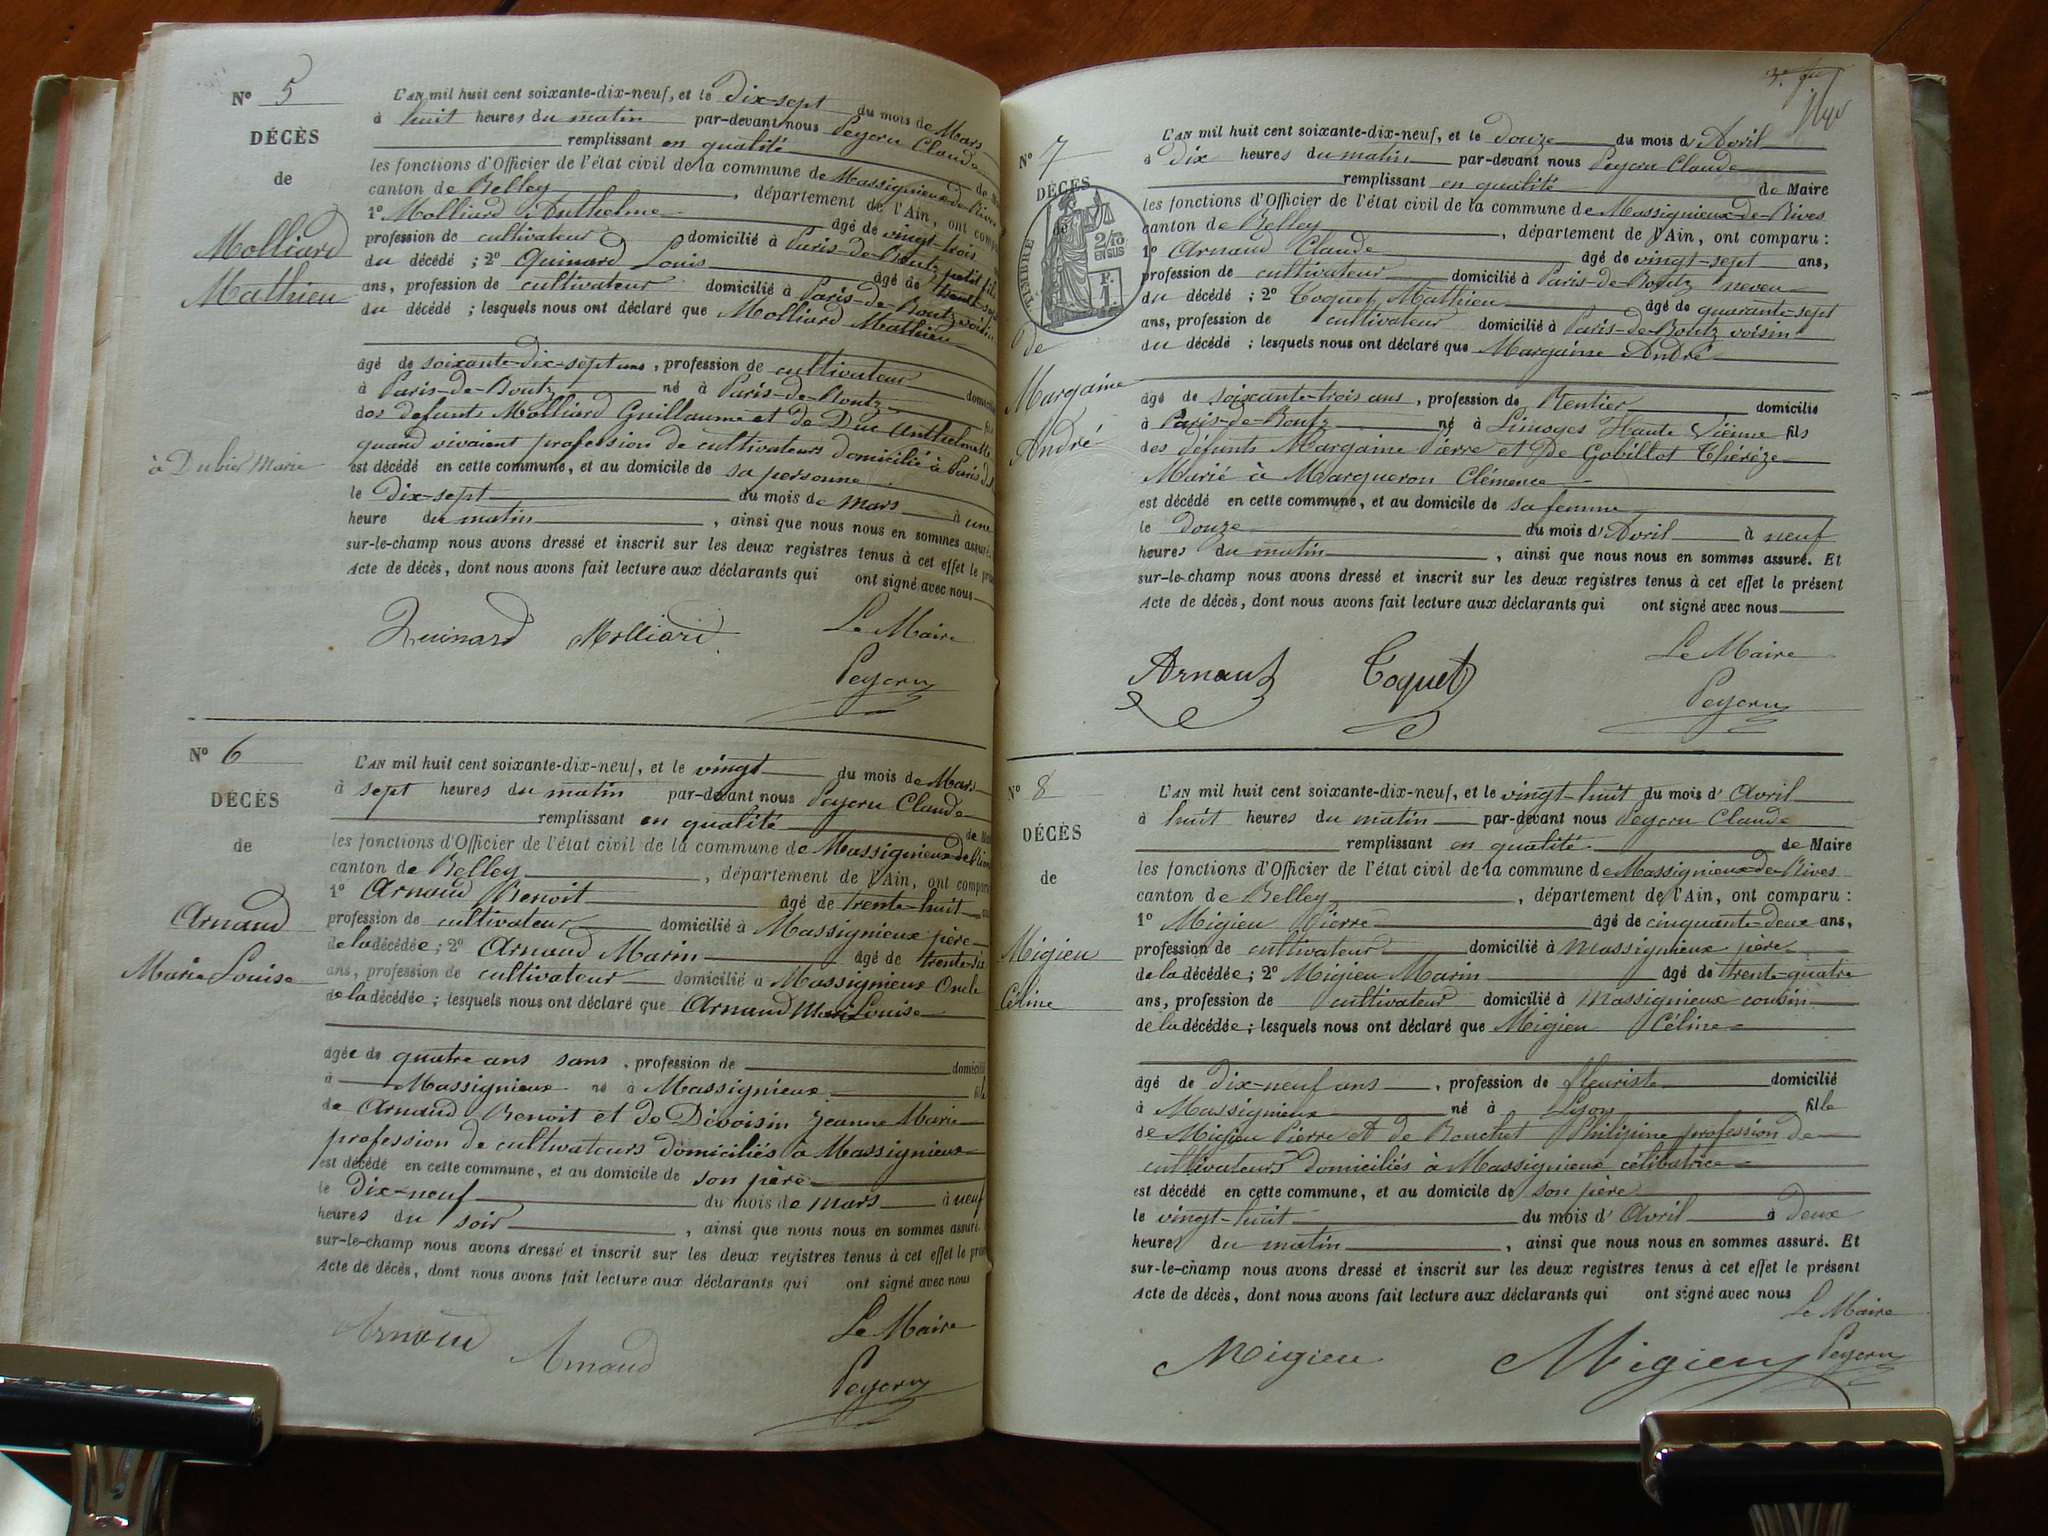 N° 5
DÉCÈS
de
Molliard
Mathieu
à Dubier Marie
L'AN mil huit cent soixante-dix-neuf, et le dix-sept du mois de Mars
à huit heures du matin par-devant nous Peycru Claude
remplissant en qualité de
les fonctions d'Officier de l'état civil de la commune de Massignieux-de-Rives
canton de Belley, département de l'Ain, ont
1° Molliard Anthelme âgé de vingt-trois
profession de cultivateur domicilié à Paris-de-Boutz petit fils
du décédé ; 2° Quinard Louis âgé de trente
ans, profession de cultivateur domicilié à Paris-de-Boutz voisin
du décédé ; lesquels nous ont déclaré que Molliard Mathieu
âgé de soixante-dix-sept ans, profession de cultivateur
à Paris-de-Boutz né à Paris-de-Boutz
des défunts Molliard Guillaume et de Duc Anthelmette
quand vivaient profession de cultivateurs domicilié à Paris
est décédé en cette commune, et au domicile de sa personne
le dix-sept du mois de mars à une
heure du matin, ainsi que nous nous en sommes assuré.
sur-le-champ nous avons dressé et inscrit sur les deux registres tenus à cet effet le
Acte de décès, dont nous avons fait lecture aux déclarants qui ont signé avec nous
Quinard Molliard Le Maire
Peycru
N° 6
DÉCÈS
de
Arnaud
Marie Louise
L'AN mil huit cent soixante-dix-neuf, et le vingt du mois de Mars
à sept heures du matin par-devant nous Peycru Claude
remplissant en qualité de
les fonctions d'Officier de l'état civil de la commune de Massignieux-de-Rives
canton de Belley, département de l'Ain, ont
1° Arnaud Benoit âgé de trente-huit
profession de cultivateur domicilié à Massignieux père
de la décédée ; 2° Arnaud Marin âgé de trente-six
ans, profession de cultivateur domicilié à Massignieux Oncle
de la décédée ; lesquels nous ont déclaré que Arnaud Marie Louise
âgée de quatre ans sans, profession de
à Massignieux né à Massignieux
de Arnaud Benoit et de Dévoisin Jeanne Marie
profession de cultivateurs domiciliés à Massignieux
est décédé en cette commune, et au domicile de son père
le dix-neuf du mois de mars à neuf
heures du soir, ainsi que nous nous en sommes assuré.
sur-le-champ nous avons dressé et inscrit sur les deux registres tenus à cet effet le
Acte de décès, dont nous avons fait lecture aux déclarants qui ont signé avec nous
Arnaud Arnaud Le Maire
Peycru
N° 7
DÉCÈS
de
TIMBRE
2/10 EN SUS
Margaine
André
L'AN mil huit cent soixante-dix-neuf, et le douze du mois d'Avril
à dix heures du matin par-devant nous Peycru Claude
remplissant en qualité de Maire
les fonctions d'Officier de l'état civil de la commune de Massignieux-de-Rives
canton de Belley, département de l'Ain, ont comparu :
1° Arnaud Claude âgé de vingt-sept ans,
profession de cultivateur domicilié à Paris-de-Boutz neveu
du décédé ; 2° Coquet Mathieu âgé de quarante-sept
ans, profession de cultivateur domicilié à Paris-de-Boutz voisin
du décédé ; lesquels nous ont déclaré que Margaine André
âgé de soixante-trois ans, profession de Rentier domicilié
à Paris-de-Boutz né à Limoges Haute Vienne fils
des défunts Margaine Pierre et De Gobillot Thérèze
Marié à Marqueron Clémence
est décédé en cette commune, et au domicile de sa femme
le douze du mois d'Avril à neuf
heures du matin, ainsi que nous nous en sommes assuré. Et
sur-le-champ nous avons dressé et inscrit sur les deux registres tenus à cet effet le présent
Acte de décès, dont nous avons fait lecture aux déclarants qui ont signé avec nous
Arnaud Coquet Le Maire
Peycru
N° 8
DÉCÈS
de
Migieu
Céline
L'AN mil huit cent soixante-dix-neuf, et le vingt-huit du mois d'Avril
à huit heures du matin par-devant nous Peycru Claude
remplissant en qualité de Maire
les fonctions d'Officier de l'état civil de la commune de Massignieux-de-Rives
canton de Belley, département de l'Ain, ont comparu :
1° Migieu Pierre âgé de cinquante-deux ans,
profession de cultivateur domicilié à Massignieux père
de la décédée ; 2° Migieu Marin âgé de trente-quatre
ans, profession de cultivateur domicilié à Massignieux cousin
de la décédée ; lesquels nous ont déclaré que Migieu Céline
âgé de dix-neuf ans, profession de fleuriste domicilié
à Massignieux né à Lyon fille
de Migieu Pierre et de Bouchet Philipine profession de
cultivateurs domiciliés à Massignieux célibatrice
est décédé en cette commune, et au domicile de son père
le vingt-huit du mois d'Avril à deux
heures du matin, ainsi que nous nous en sommes assuré. Et
sur-le-champ nous avons dressé et inscrit sur les deux registres tenus à cet effet le présent
Acte de décès, dont nous avons fait lecture aux déclarants qui ont signé avec nous
Le Maire
Migieu Migieu Peycru